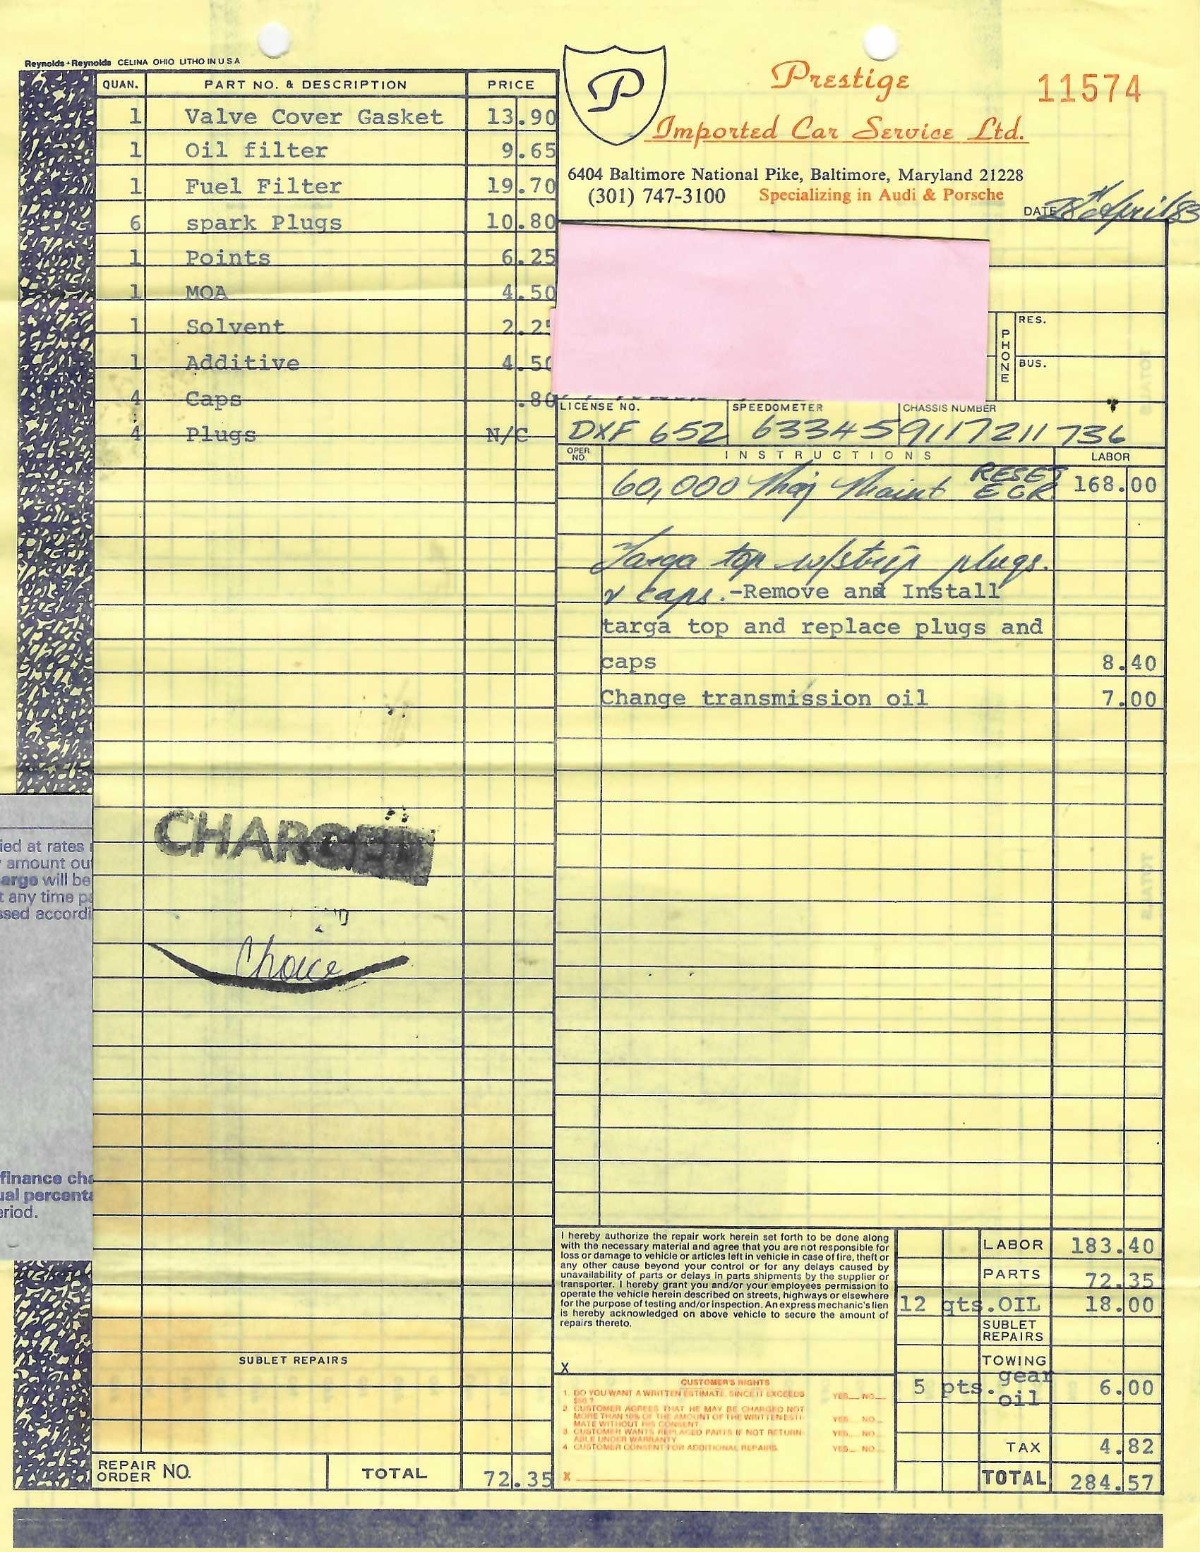 Reynolds + Reynolds CELINA OHIO LITHO IN U S A
QUAN. PART NO. & DESCRIPTION PRICE
1 Valve Cover Gasket 13.90
1 Oil filter 9.65
1 Fuel Filter 19.70
6 spark Plugs 10.80
1 Points 6.25
1 MOA 4.50
1 Solvent 2.25
1 Additive 4.50
4 Caps .80
4 Plugs N/C
CHARGED
Choice
SUBLET REPAIRS
REPAIR ORDER NO. TOTAL 72.35
P
Prestige
Imported Car Service Ltd.
11574
6404 Baltimore National Pike, Baltimore, Maryland 21228
(301) 747-3100 Specializing in Audi & Porsche
DATE April/83
PHONE
RES.
BUS.
LICENSE NO. SPEEDOMETER CHASSIS NUMBER
DXF 652 63345 9117211736
OPER. NO. INSTRUCTIONS LABOR
60,000 Maj Maint RESET EGR 168.00
Targa top w/strip plugs.
& caps.-Remove and Install
targa top and replace plugs and
caps 8.40
Change transmission oil 7.00
I hereby authorize the repair work herein set forth to be done along
with the necessary material and agree that you are not responsible for
loss or damage to vehicle or articles left in vehicle in case of fire, theft or
any other cause beyond your control or for any delays caused by
unavailability of parts or delays in parts shipments by the supplier or
transporter. I hereby grant you and/or your employees permission to
operate the vehicle herein described on streets, highways or elsewhere
for the purpose of testing and/or inspection. An express mechanic's lien
is hereby acknowledged on above vehicle to secure the amount of
repairs thereto.
X
CUSTOMER'S RIGHTS
1. DO YOU WANT A WRITTEN ESTIMATE, SINCE IT EXCEEDS
$50 ? YES__ NO__
2. CUSTOMER AGREES THAT HE MAY BE CHARGED NOT
MORE THAN 10% OF THE AMOUNT OF THE WRITTEN ESTI-
MATE WITHOUT HIS CONSENT. YES__ NO__
3. CUSTOMER WANTS REPLACED PARTS IF NOT RETURN-
ABLE UNDER WARRANTY YES__ NO__
4. CUSTOMER CONSENT FOR ADDITIONAL REPAIRS. YES__ NO__
X
LABOR 183.40
PARTS 72.35
12 qts. OIL 18.00
SUBLET REPAIRS
TOWING
5 pts. gear oil 6.00
TAX 4.82
TOTAL 284.57
ied at rates
amount ou
arge will be
t any time p
ssed accordi
finance cha
ual percenta
eriod.